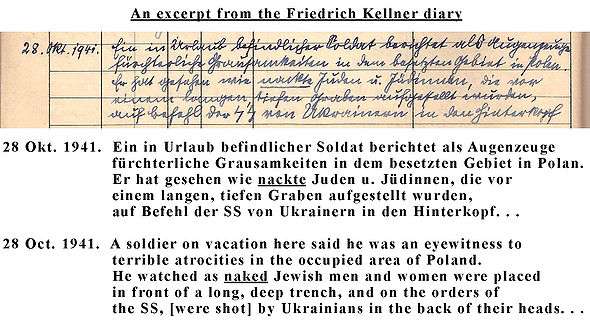 An excerpt from the Friedrich Kellner diary
28. Okt. 1941. Ein in Urlaub befindlicher Soldat berichtet als Augenzeuge
fürchterliche Grausamkeiten in dem besetzten Gebiet in Polen.
Er hat gesehen wie nackte Juden u. Jüdinnen, die vor
einem langen, tiefen Graben aufgestellt wurden,
auf Befehl der SS von Ukrainern in den Hinterkopf
28 Okt. 1941. Ein in Urlaub befindlicher Soldat berichtet als Augenzeuge
fürchterliche Grausamkeiten in dem besetzten Gebiet in Polan.
Er hat gesehen wie nackte Juden u. Jüdinnen, die vor
einem langen, tiefen Graben aufgestellt wurden,
auf Befehl der SS von Ukrainern in den Hinterkopf. . .
28 Oct. 1941. A soldier on vacation here said he was an eyewitness to
terrible atrocities in the occupied area of Poland.
He watched as naked Jewish men and women were placed
in front of a long, deep trench, and on the orders of
the SS, [were shot] by Ukrainians in the back of their heads. . .